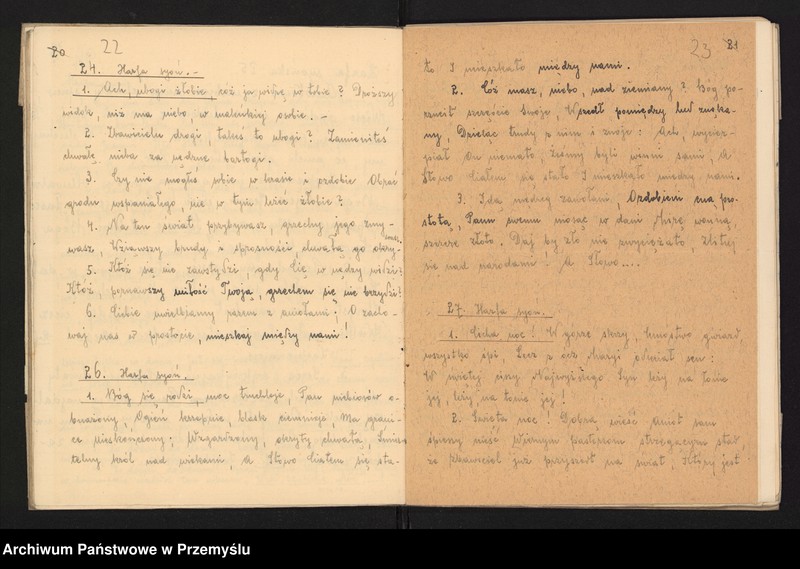 20 22
24. Harfa syjoń. -
1. Ach, ubogi żłobie, cóż ja widzę w tobie? Droższy
widok, niż ma niebo, w maleńkiej osobie. -
2. Zbawicielu drogi, takeś to ubogi? Zamieniłeś
chwałę nieba za nędzne barłogi.
3. Czy nie mogłeś sobie w krasie i ozdobie Obrać
grodu wspaniałego, nie w tym leżeć żłobie?
4. Na ten świat przybywasz, grzechy jego zmy-
wasz, Wezrawszy brudy i sprosności chwałą go okry-
wasz.
5. Któż się nie zawstydzi, gdy Cię w nędzy widzi?
Któż, poznawszy miłość Twoją, grzechem się nie brzydzi?
6. Ciebie uwielbiamy razem z aniołami; O zacho-
waj nas w prostocie, mieszkaj między nami!
26. Harfa syjoń.
1. Bóg się rodzi, moc truchleje, Pan niebiosów o-
bnażony, Ogień krzepnie, blask ciemnieje, Ma grani-
ce nieskończony; Wzgardzony, okryty chwałą, Śmier
telny król nad wiekami, A Słowo Ciałem się sta-
23 21
ło I mieszkało między nami.
2. Cóż masz, niebo, nad ziemiany? Bóg po-
rzucił szczęście Swoje, Wszedł pomiędzy lud znęka-
ny, Dzieląc trudy z nim i znoje; Ach, wycier-
piał On niemało, Żeśmy byli winni sami, A
Słowo Ciałem się stało I mieszkało między nami.
3. Idą mędrcy zawołani, Ozdobieni ma pro-
stotą, Panu swemu niosąc w dani Mirę wonną,
szczere złoto. Daj by zło nie zwyciężało, Zlituj
się nad narodami! A Słowo....
27. Harfa syjoń.
1. Cicha noc! W górze skrzy, mnóstwo gwiazd,
wszystko śpi, Lecz z ócz Maryi odleciał sen:
W świętej ciszy Najwyższego Syn leży na łonie
jej, leży na łonie jej!
2. Święta noc! Dobrą wieść anioł sam
śpieszy nieść Wiernym pasterzom strzegącym stad,
że Zbawiciel już przyszedł na świat, Który jest
Archiwum Państwowe w Przemyślu